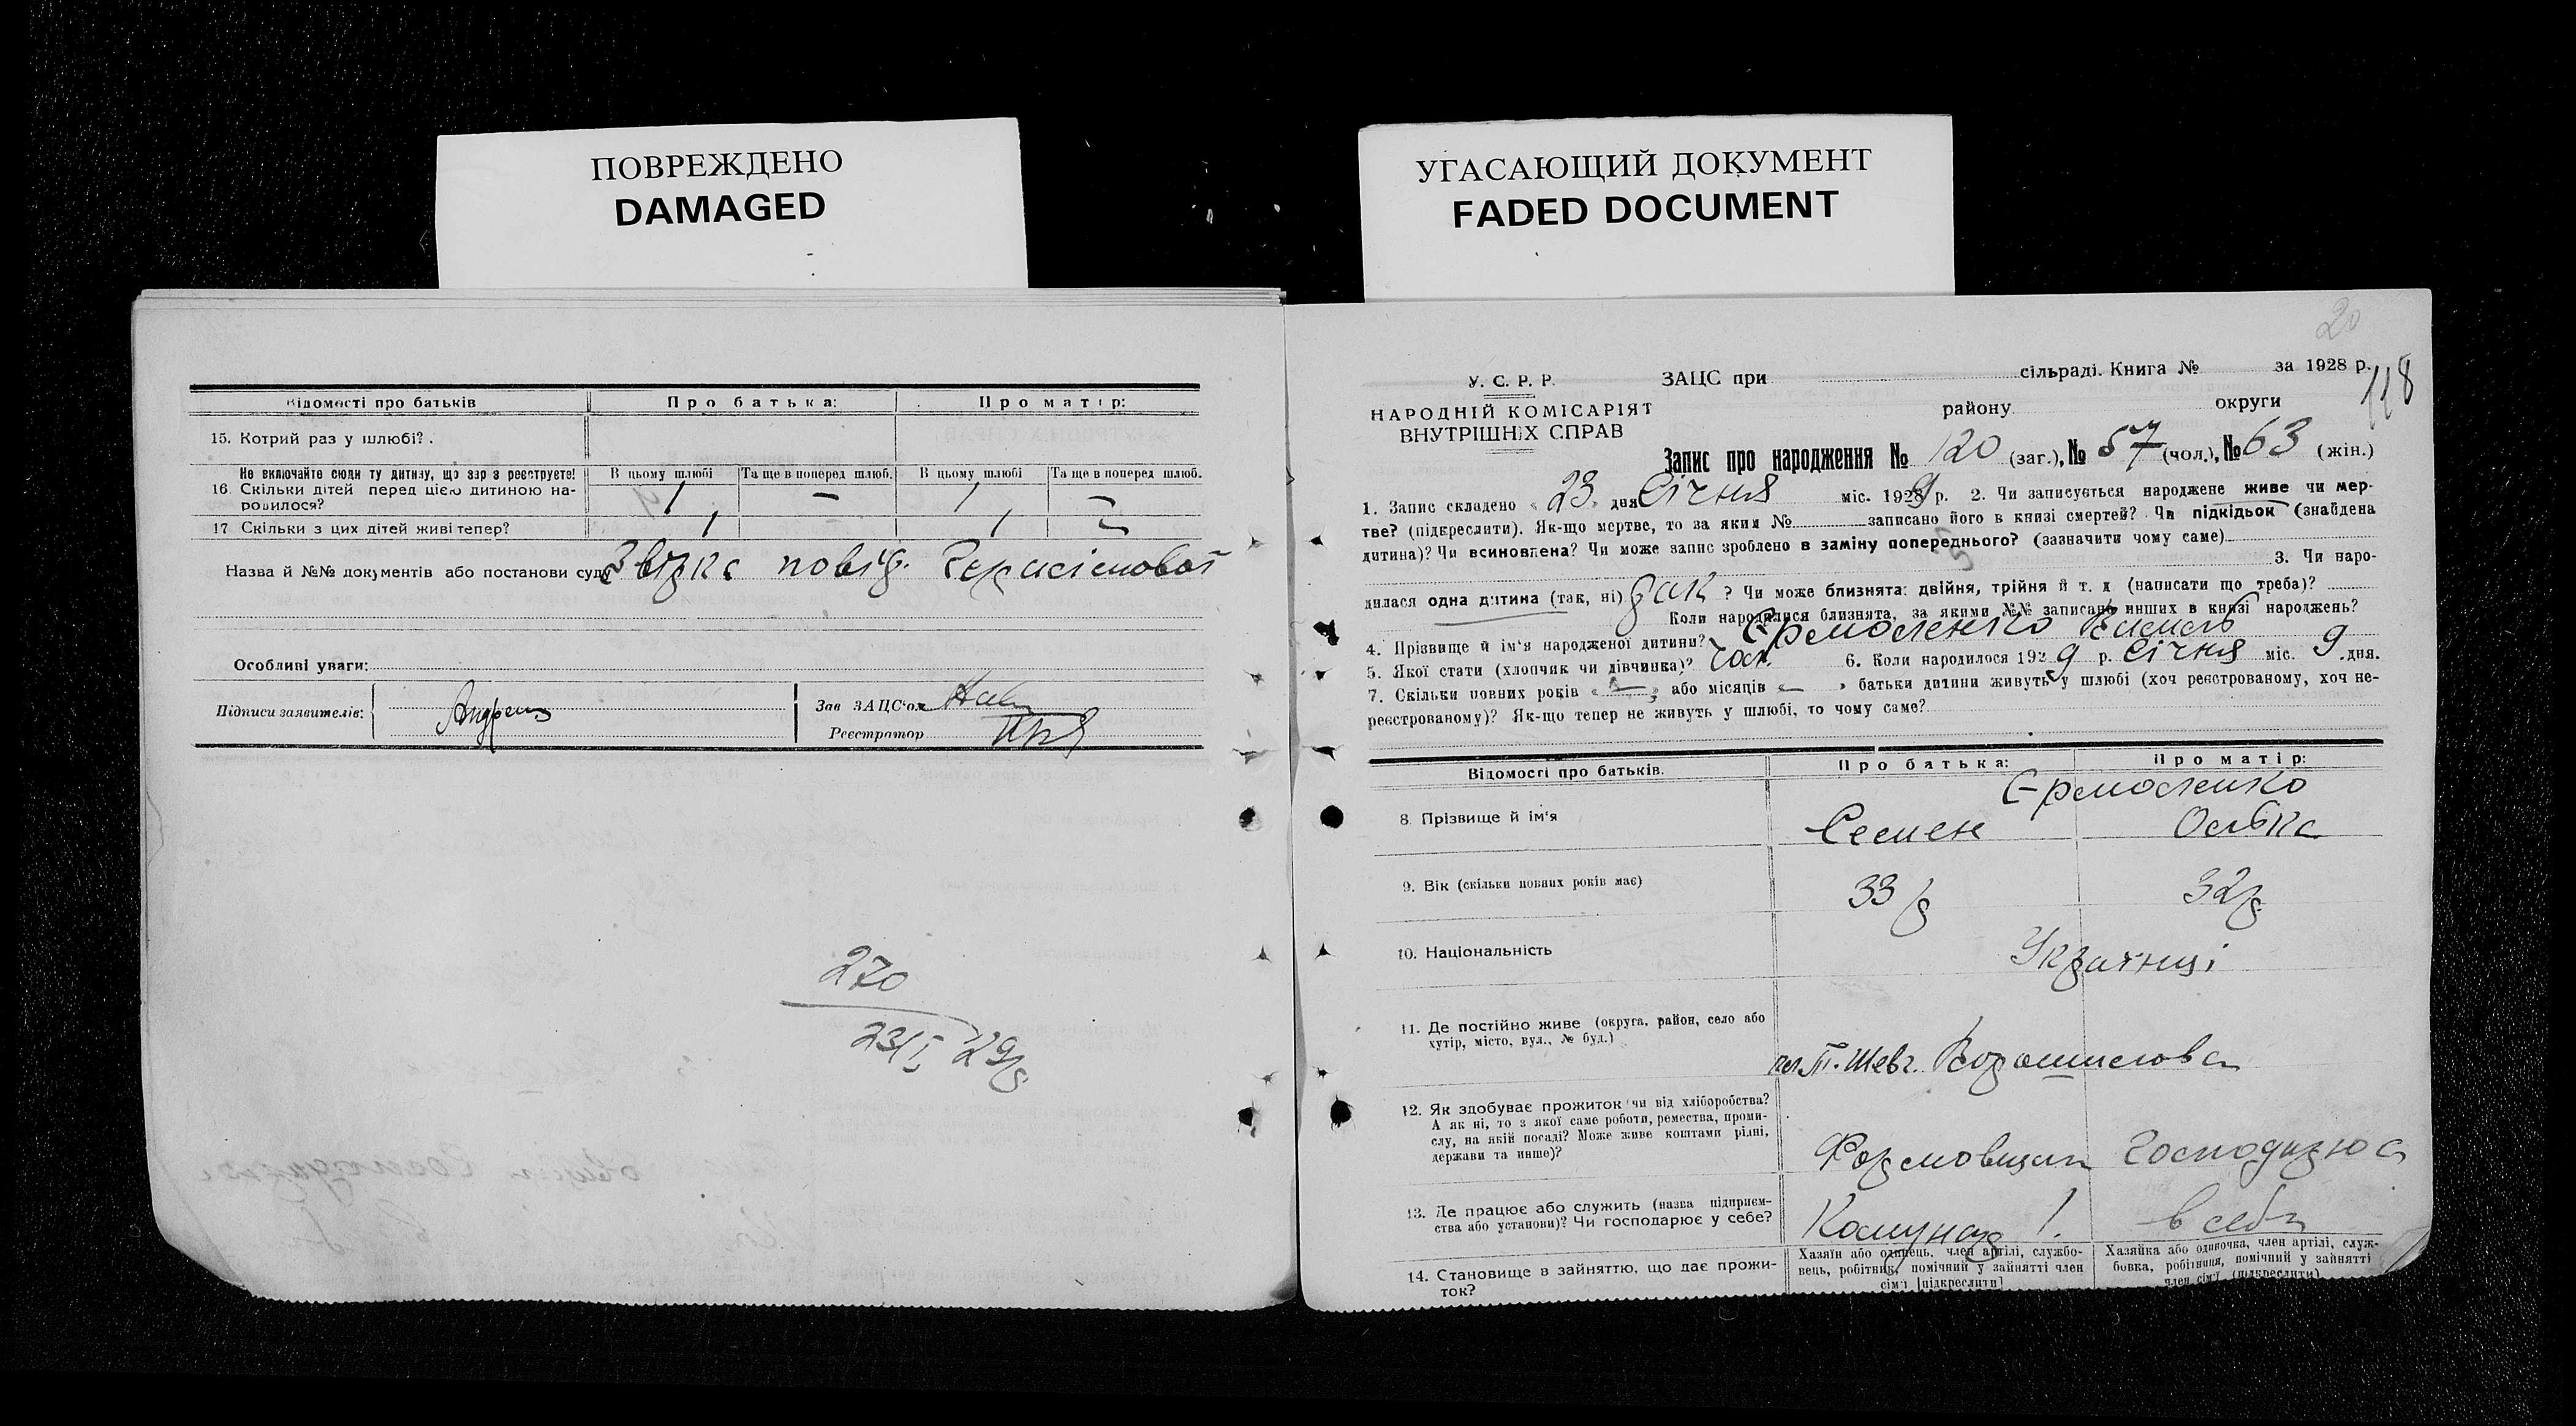 ПОВРЕЖДЕНО
DAMAGED
УГАСАЮЩИЙ ДОКУМЕНТ
FADED DOCUMENT
Відомості про батьків
Про батька:
Про матір:
15. Котрий раз у шлюбі?
Не включайте сюди ту дитину, що зар з реєструєте!
16. Скільки дітей перед цією дитиною на-
родилося?
В цьому шлюбі
Та ще в поперед шлюб.
В цьому шлюбі
Та ще в поперед шлюб.
1 — 1 —
17 Скільки з цих дітей живі тепер?
1 — 1 —
Назва й №№ документів або постанови суду
Особливі уваги:
Підписи заявителів:
Зав ЗАЦС'ом
Реєстратор
270
23/I 29р
20
118
У. С. Р. Р.
НАРОДНІЙ КОМІСАРІЯТ
ВНУТРІШНІХ СПРАВ
ЗАЦС при сільраді. Книга № за 1928 р.
району округи
Запис про народження № 120 (заг.), № 57 (чол.), № 63 (жін.)
1. Запис складено «23» дня Січня міс. 1929 р. 2. Чи записується народжене живе чи мер-
тве? (підкреслити). Як-що мертве, то за яким № записано його в книзі смертей? Чи підкідьок (знайдена
дитина)? Чи всиновлена? Чи може запис зроблено в заміну попереднього? (зазначити чому саме)
3. Чи наро-
дилася одна дитина (так, ні) ? Чи може близнята: двійня, трійня й т. д (написати що треба)?
Коли народилися близнята, за якими №№ записано инших в книзі народжень?
4. Прізвище й ім'я народженої дитини? Єрмоленко
5. Якої стати (хлопчик чи дівчинка)? 6. Коли народилося 1929 р. Січня міс. 9 дня.
7. Скільки повних років «—» або місяців «—» батьки дитини живуть у шлюбі (хоч реєстрованому, хоч не-
реєстрованому)? Як-що тепер не живуть у шлюбі, то чому саме?
Відомості про батьків.
Про батька:
Про матір:
Єрмоленко
8. Прізвище й ім'я
Семен
Ольга
9. Вік (скільки повних років має)
33 р
32 р
10. Національність
Українці
11. Де постійно живе (округа, район, село або
хутір, місто, вул., № буд.)
Ворошилова
12. Як здобуває прожиток чи від хліборобства?
А як ні, то з якої саме роботи, ремества, проми-
слу, на якій посаді? Може живе коштами рідні,
держави та инше)?
Формовщик
13. Де працює або служить (назва підприєм-
ства або установи)? Чи господарює у себе?
в себе
14. Становище в зайняттю, що дає прожи-
ток?
Хазяїн або одинець, член артілі, службо-
вець, робітник, помічний у зайнятті член
сім'ї [підкреслити]
Хазяйка або одиночка, член артілі, служ-
бовка, робітниця, помічний у зайнятті
член сім'ї (підкреслити)